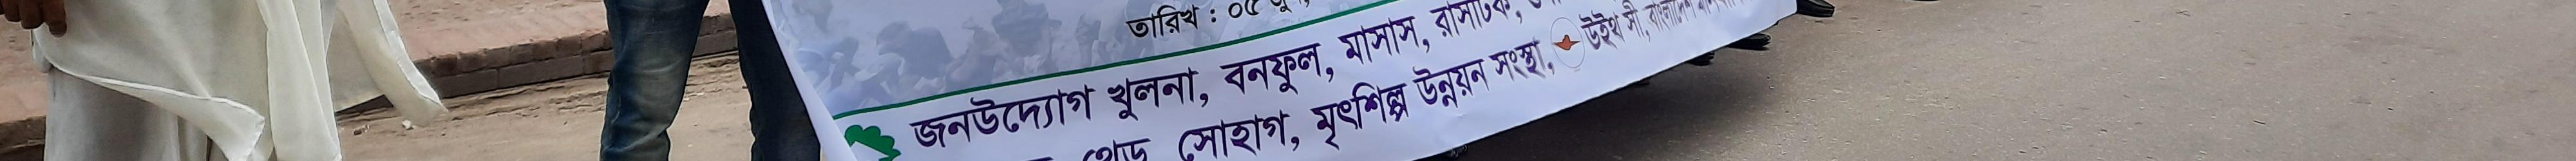 তারিখ : ০৫
জনউদ্যোগ খুলনা, বনফুল, মাসাস,
সোহাগ, মৃৎশিল্প উন্নয়ন সংস্থা, উইথ সী, বাংলাদেশ